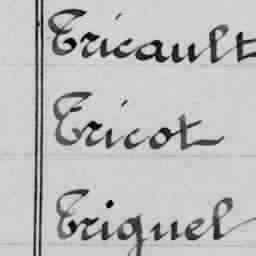 Tricault
Tricot
Triguel